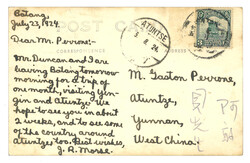 POST CARD
CORRESPONDENCE
Batang,
July 23, 1924.
Dear Mr. Perrons:-
Mr. Duncan and I are
leaving Batang tomorrow
morning for a trip of
one month, visiting Yen-
gin and Atuntze. We
hope to see you in about
2 weeks, and to see some
of the country around
Atuntze too. Best wishes,
J. A. Morse.
ATUNTSE
M. Gaston Perronne,
Atuntze,
Yunnan,
West China
阿